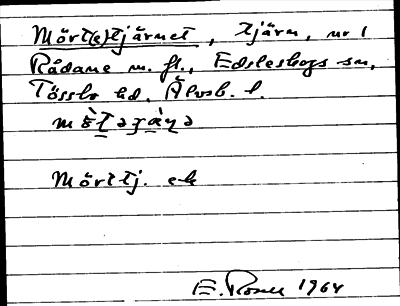 Mört(e)tjärnet, tjärn, nr 1
Rådane m. fl., Edsleskogs sn,
Tössbo hd. Älvsb. l.
Mörttj. ek
E. Rosell 1964